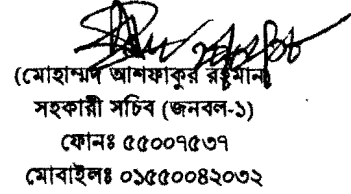 (মোহাম্মদ আশফাকুর রহমান)
সহকারী সচিব (জনবল-১)
ফোনঃ ৫৫০০৭৫৩৭
মোবাইলঃ ০১৫৫০০৪২০৩২